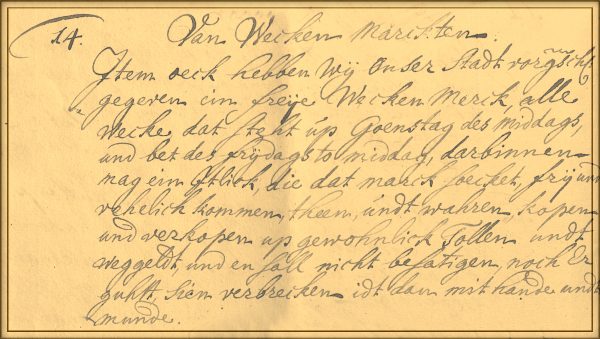 14. Van Wecken Marckten.
Item oeck hebben Wÿ Onser Stadt vorgsch.
gegeven ein freÿe Wecken Merck, alle
Wecke dat steht up Goenstag des middags,
und bet des frÿdags to middag, darbinnen
mag ein Itlick, die dat marck soecket, frÿ und
vehelich kommen, theen, undt wahren, kopen
und verkopen up gewohnlick Tollen undt
weggeldt, und en sall nicht besatigen, noch Er
guhtt, Sien verbrecken idt dan mit hande undt
munde.